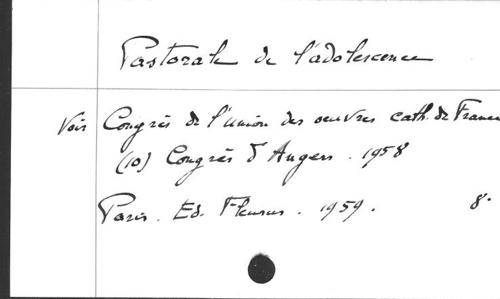 Pastorale de l'adolescence
Voir Congrès de l'union des oeuvres cath. de France
(10) Congrès d'Angers. 1958
Paris. Ed. Fleurus. 1959. 8°